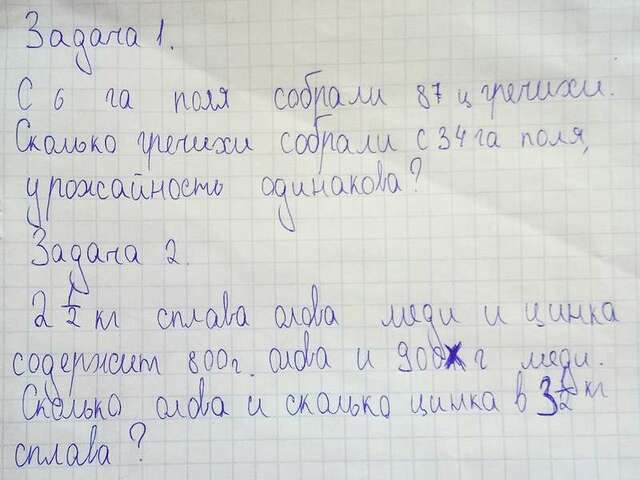 Задача 1.
С 6 га поля собрали 87 ц гречихи.
Сколько гречихи собрали с 34 га поля,
урожайность одинакова?
Задача 2.
2 1/2 кг сплава олова меди и цинка
содержит 800г. олова и 900 г меди.
Сколько олова и сколько цинка в 3 1/2 кг
сплава?